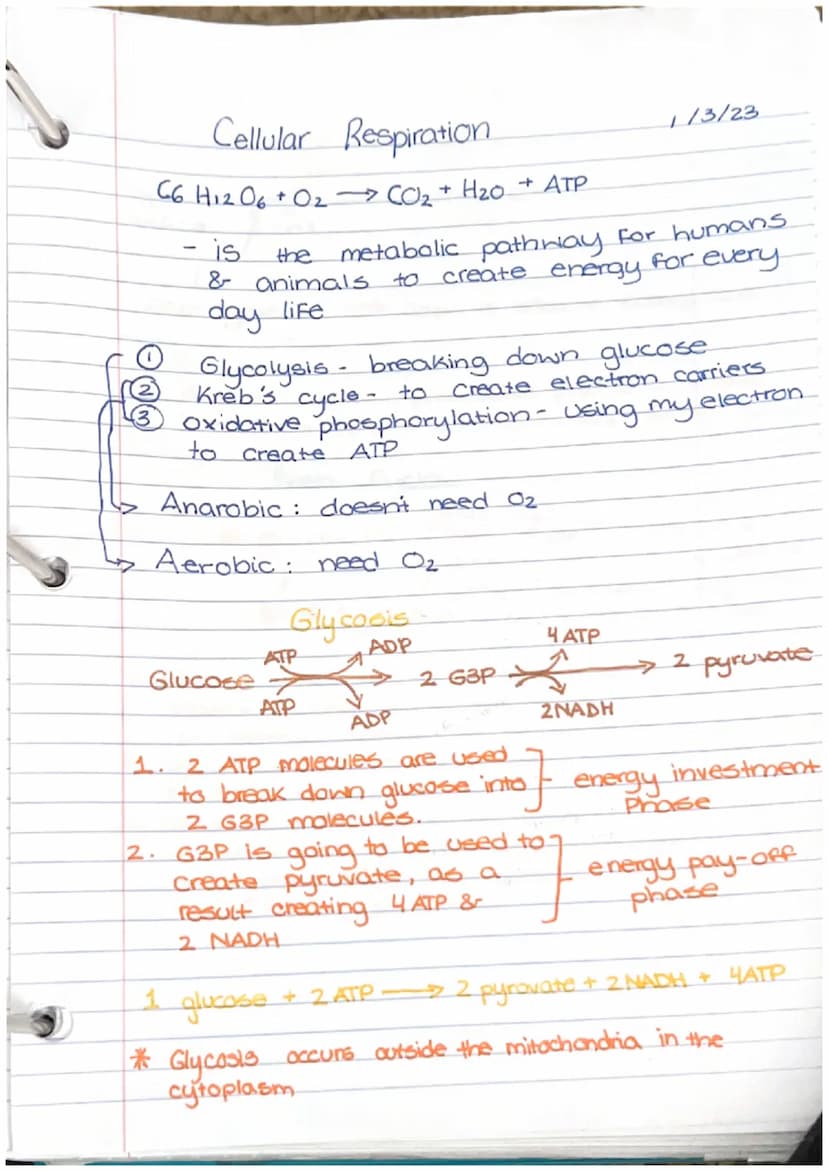 1/3/23
Cellular Respiration
C6 H12 O6 + O2 → CO2 + H2O + ATP
- is the metabolic pathway for humans
& animals to create energy for every
day life
① Glycolysis - breaking down glucose
② Kreb's cycle - to create electron carriers
③ oxidative phosphorylation - using my electron
to create ATP
↳ Anarobic : doesn't need O2
↳ Aerobic : need O2
Glycosis
ATP ADP 4 ATP
Glucose → 2 G3P → 2 pyruvate
ATP ADP 2NADH
1. 2 ATP molecules are used
to break down glucose into energy investment
2 G3P molecules. Phase
2. G3P is going to be used to
create pyruvate, as a energy pay-off
result creating 4 ATP & phase
2 NADH
1 glucose + 2 ATP → 2 pyrovate + 2 NADH + 4ATP
* Glycosis occurs outside the mitochondria in the
cytoplasm